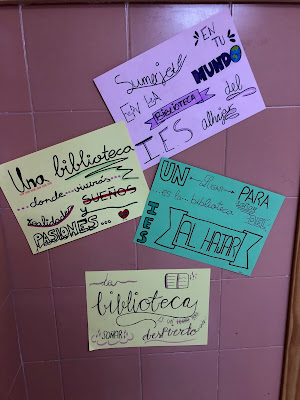 Sumérjete EN TU
MUNDO
EN LA
BIBLIOTECA del
IES alhajar
Una biblioteca
...donde vivirás
realidades SUEÑOS
Y
PASIONES...
UN libro PARA
...es la biblioteca
IES
AL HAJAR
La
biblioteca
es un
SOÑAR
despierto